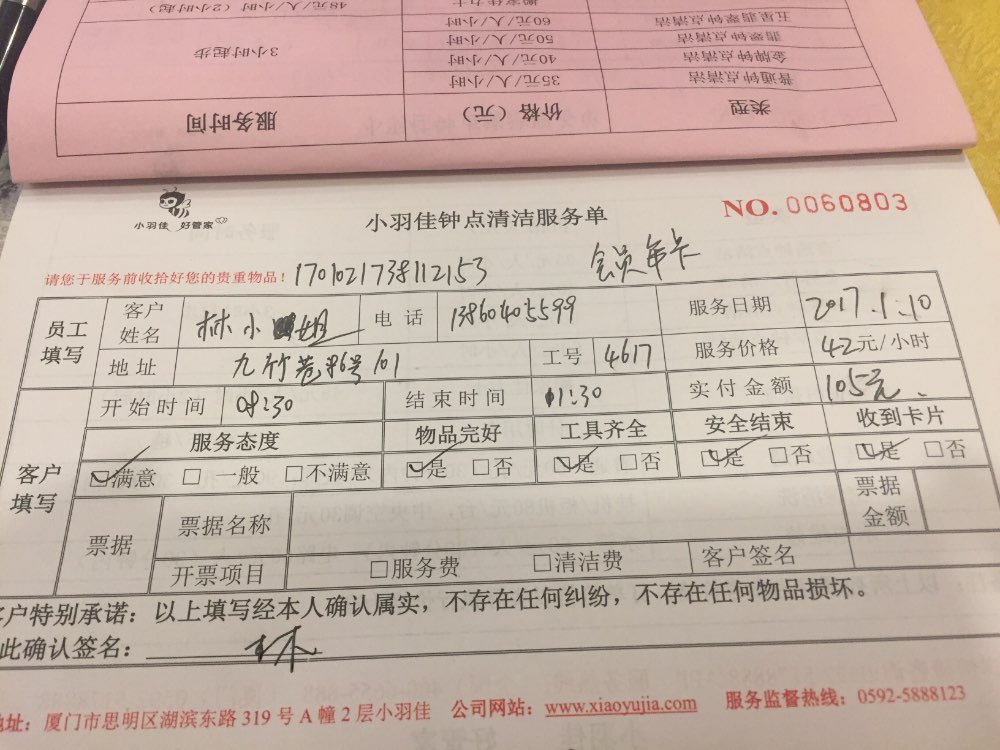 48元/人/小时(2小时起)
五星翡翠钟点清洁 60元/人/小时
翡翠钟点清洁 50元/人/小时 3小时起步
金牌钟点清洁 40元/人/小时
普通钟点清洁 35元/人/小时
类型 价格(元) 服务时间
小羽佳 好管家
小羽佳钟点清洁服务单
NO. 0060803
请您于服务前收拾好您的贵重物品! 1701021738112153 会员年卡
员工填写 客户姓名 林小姐 电话 13860405599 服务日期 2017.1.10
地址 九竹巷36号101 工号 4617 服务价格 42元/小时
客户填写 开始时间 08:30 结束时间 11:30 实付金额 105元
服务态度 物品完好 工具齐全 安全结束 收到卡片
☑满意 □一般 □不满意 ☑是 □否 ☑是 □否 ☑是 □否 ☑是 □否
票据 票据名称 票据金额
开票项目 □服务费 □清洁费 客户签名
客户特别承诺:以上填写经本人确认属实,不存在任何纠纷,不存在任何物品损坏。
此确认签名: 林
地址:厦门市思明区湖滨东路319号A幢2层小羽佳 公司网站:www.xiaoyujia.com 服务监督热线:0592-5888123